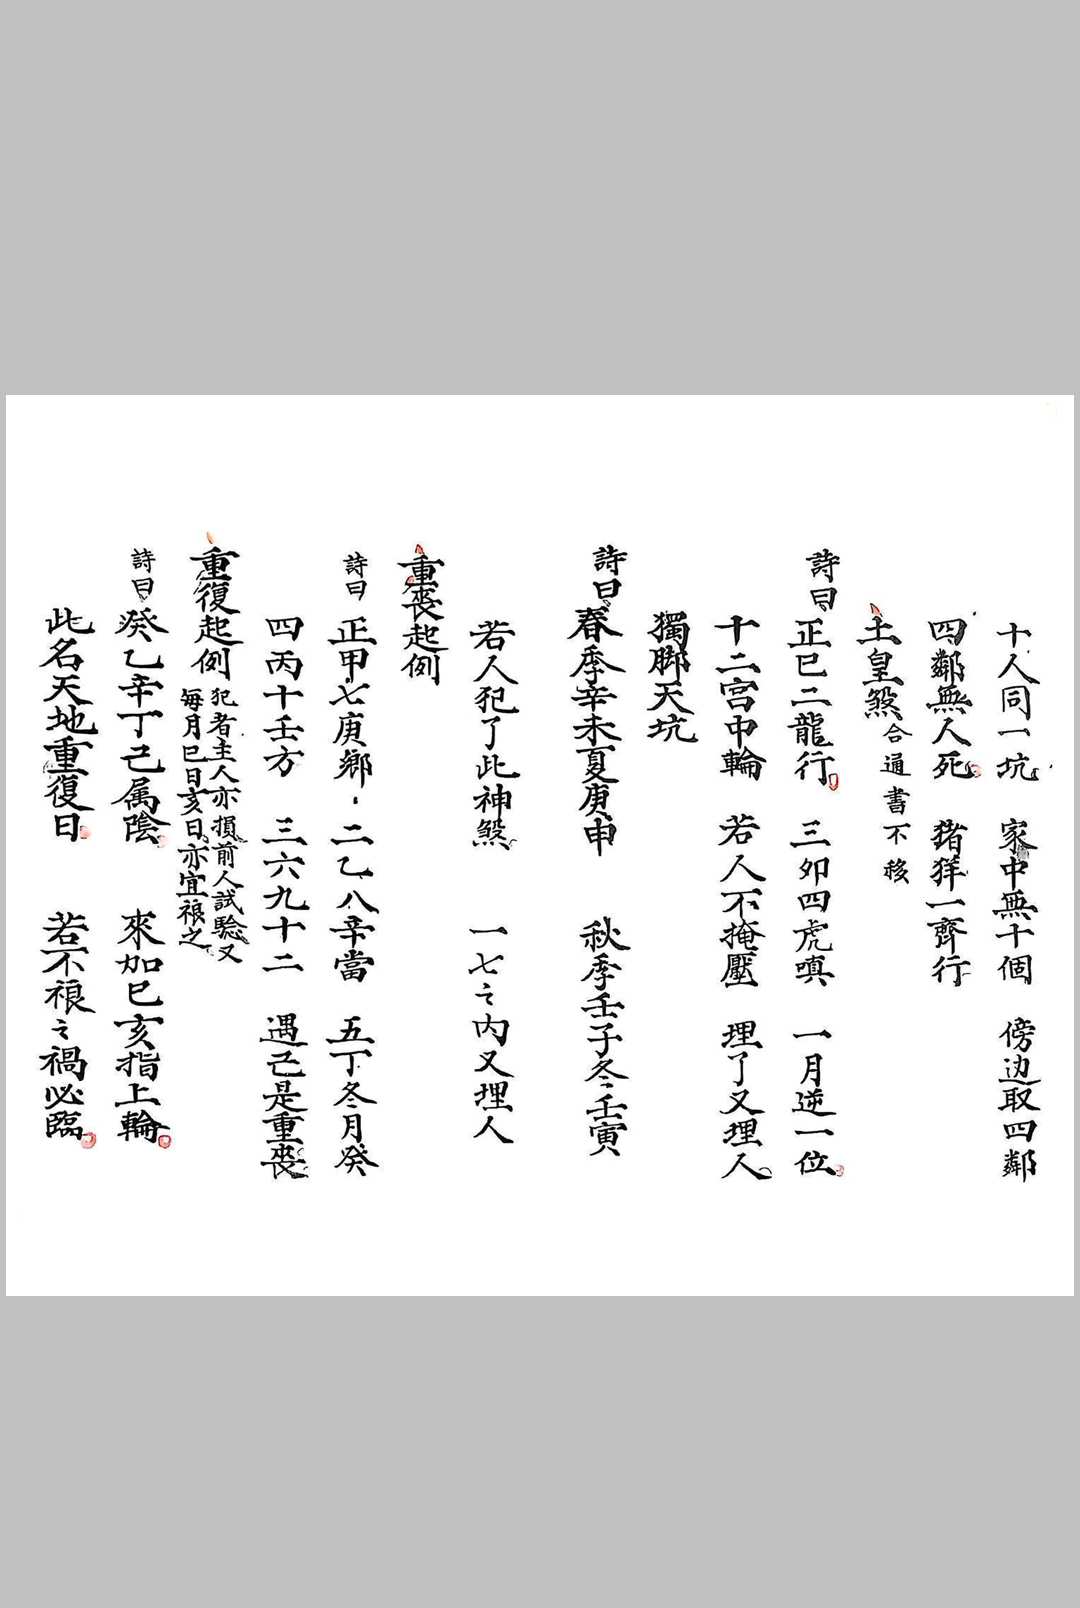 十人同一坑 家中無十個 傍边取四鄰
四鄰無人死 猪羊一齊行
土皇煞合通書不移
詩曰 正巳二龍行 三夘四虎嗔 一月逆一位
十二宫中輪 若人不掩壓 埋了又埋人
獨脚天坑
詩曰 春季辛未夏庚申 秋季壬子冬壬寅
若人犯了此神煞 一七之内又埋人
重丧起例
詩曰 正甲七庚鄉 二乙八辛當 五丁冬月癸
四丙十壬方 三六九十二 遇己是重丧
重復起例
犯者主人亦損前人試驗又
每月巳日亥日亦宜禳之
詩曰 癸乙辛丁己属陰 來加巳亥指上輪
此名天地重復日 若不禳之禍必臨